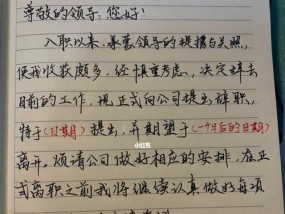 尊敬的领导：您好！
入职以来，承蒙领导的提携与关照，
使我收获颇多，经慎重考虑，决定辞去
目前的工作，现正式向公司提出辞职，
特于（日期）提出，并期望于（一个月后的日期）
离开。烦请公司做好相应的安排，在正
式离职之前我将继续认真做好每项
小红书